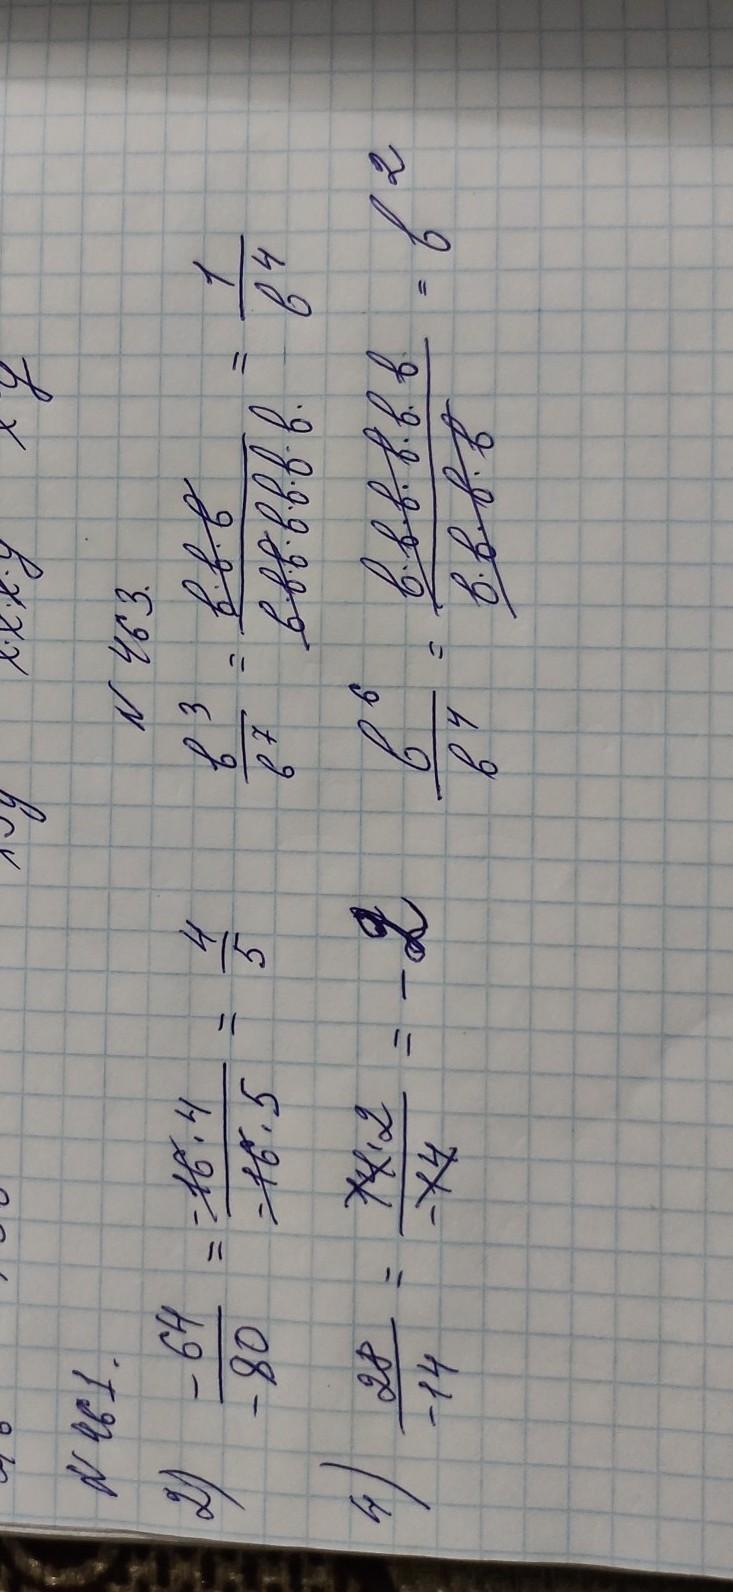 N 461.
2) -64/-80 = -16·4/-16·5 = 4/5
4) 28/-14 = 14·2/-14 = -2
N 463.
b³/b⁷ = b·b·b/b·b·b·b·b·b·b. = 1/b⁴
b⁶/b⁴ = b·b·b·b·b·b/b·b·b·b = b²